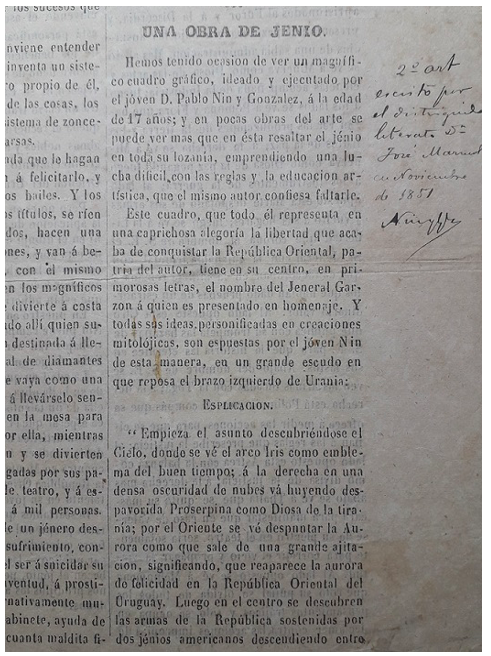 los sucesos que
nviene entender
inventa un siste-
ro propio de él,
de las cosas, los
sistema de zonce-
arsas.
nda que le hagan
n á felicitarlo, y
os bailes. Y los
s títulos, se ríen
dos, hacen una
ones, y van á be-
con el mismo
en los magníficos
e divierte á costa
do allí quien su-
n destinada á lle-
al de diamantes
e vaya como una
á llevárselo sen-
en la mesa para
or ella, mientras
n y se divierten
gadas por sus pa-
de teatro, y á es-
á mil personas.
e un jénero des-
sufrimiento, con-
el ser á suicidar su
uventud, á prosti-
rnativamente mu-
abinete, ayuda de
cuanta maldita fi-
UNA OBRA DE JENIO.
Hemos tenido ocasion de ver un magnífi-
co cuadro gráfico, ideado y ejecutado por
el jóven D. Pablo Nin y Gonzalez, á la edad
de 17 años; y en pocas obras del arte se
puede ver mas que en ésta resaltar el jénio
en toda su lozanía, emprendiendo una lu-
cha dificil con las reglas y la educacion ar-
tística, que el mismo autor confiesa faltarle.
Este cuadro, que todo él representa en
una caprichosa alegoría la libertad que aca-
ba de conquistar la República Oriental, pa-
tria del autor, tiene en su centro, en pri-
morosas letras, el nombre del Jeneral Gar-
zon á quien es presentado en homenaje. Y
todas sus ideas personificadas en creaciones
mitolójicas, son espuestas por el jóven Nin
de esta manera, en un grande escudo en
que reposa el brazo izquierdo de Urania:
ESPLICACION.
"Empieza el asunto descubriéndose el
Cielo, donde se vé el arco Iris como emble-
ma del buen tiempo; á la derecha en una
densa oscuridad de nubes vá huyendo des-
pavorida Proserpina como Diosa de la tira-
nía; por el Oriente se vé despuntar la Au-
rora como que sale de una grande ajita-
cion, significando, que reaparece la aurora
de felicidad en la República Oriental del
Uruguay. Luego en el centro se descubren
las armas de la República sostenidas por
dos jénios americanos descendiendo entre
2º art
escrito por
el distinguido
literato Dn
José Marmol
en Noviembre
de 1851